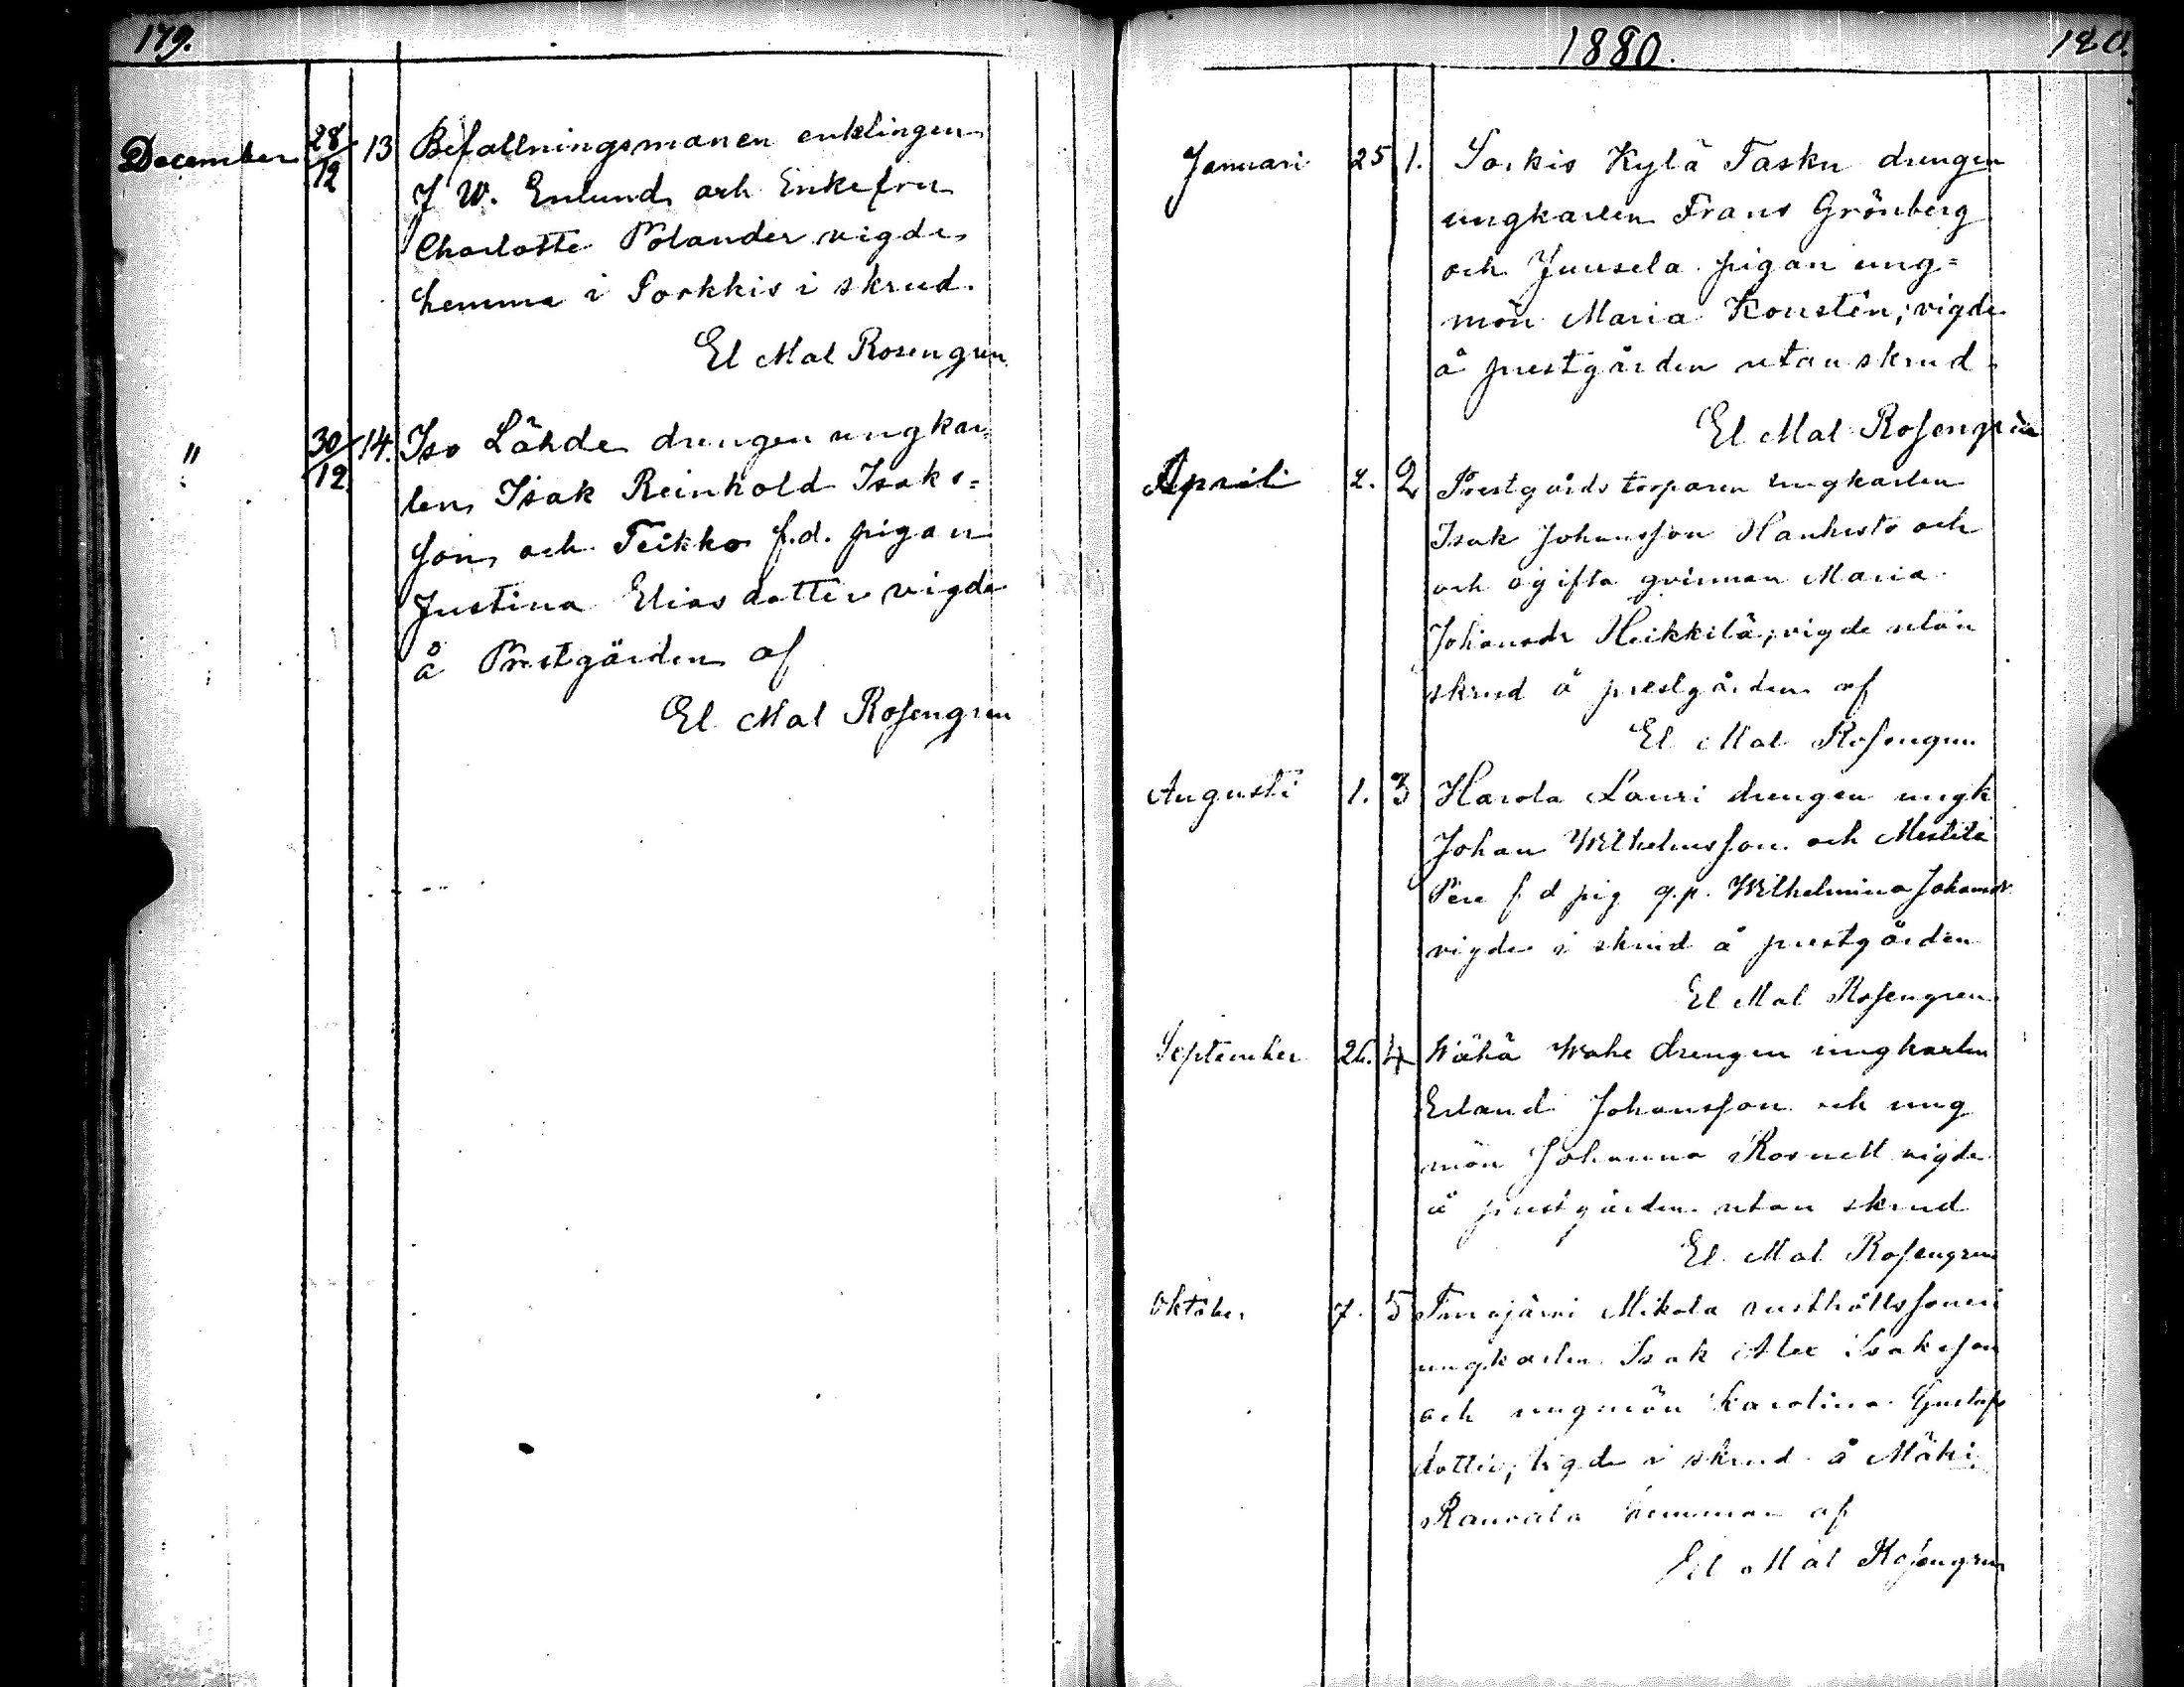 179.
December 28/12 13 Befallningsmanen enklingen
J W. Enlund och Enkefru
Charlotte Polander vigde
hemma i Sorkkis i skrud.
El Mal Rosengren
" 30/12 14. Iso Lähde drengen ungkar-
len Isak Reinhold Isaks=
son och Teikko f.d. pigan
Justina Elias dotter vigde
å Prestgården af
El Mal Rosengren
1880.
180.
Januari 25 1. Sorkis Kylä Tasku drengen
ungkarlen Frans Grönberg
och Juusela pigan ung=
mön Maria Konstén; vigde
å prestgården utan skrud
El Mal Rosengren
April 2. 2 Prestgårds torparen ungkarlen
Isak Johansson Hanhisto och
och ogifta qvinnan Maria
Johansdr Heikkilä; vigde utan
skrud å prestgården af
El Mal Rosengren
Augusti 1. 3 Harola Lauri drengen ungk
Johan Wilhelmsson och Mestilä
f d pig q.p. Wilhelmina Johansdr
vigde i skrud å prestgården
El Mal Rosengren
September 26. 4 Wähä drengen ungkarlen
Erland Johansson och ung
mön Johanna Rosnell vigde
å prestgården utan skrud
El Mal Rosengren
Oktober 7. 5 Turajärvi Mikola rusthållssonen
ungkarlen Isak Alex Isaksson
och ungmön Karolina Gustafs
dotter; vigde i skrud å Mäki
hemman af
El Mal Rosengren